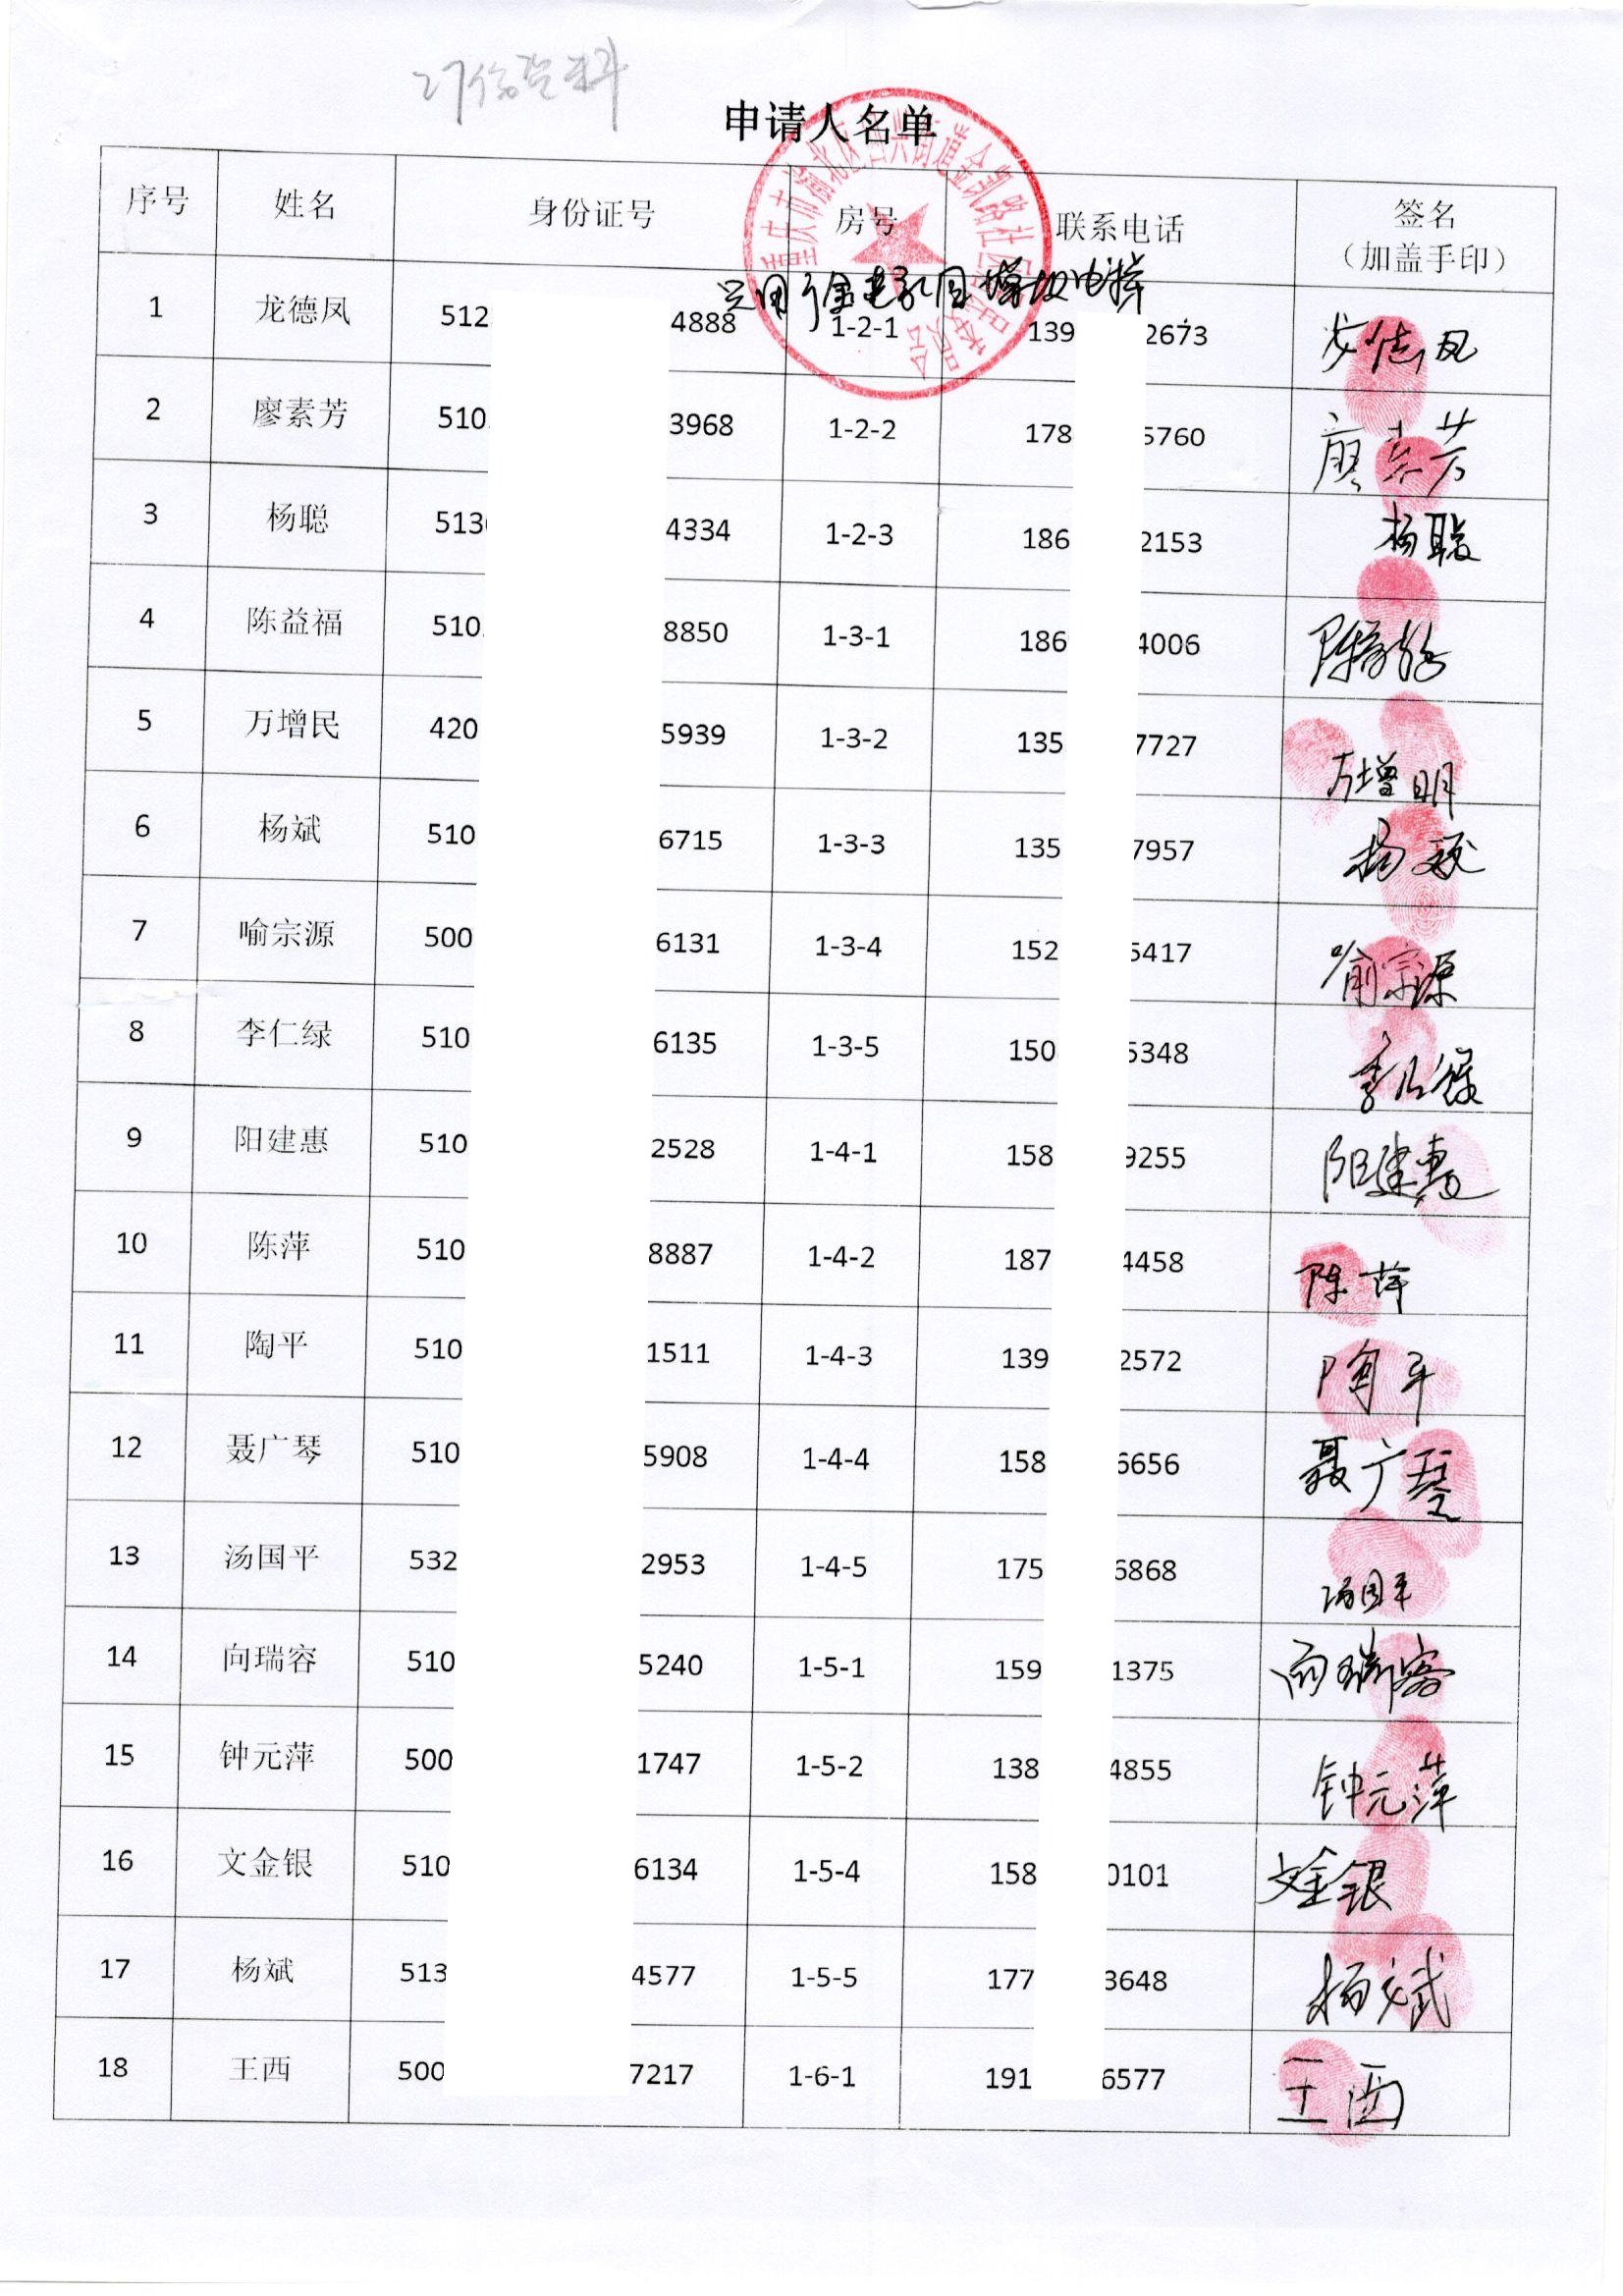 申请人名单
序号 姓名 身份证号 房号 联系电话 签名
（加盖手印）
1 龙德凤 512 4888 1-2-1 139 2673 龙德凤
2 廖素芳 510 3968 1-2-2 178 5760 廖素芳
3 杨聪 513 4334 1-2-3 186 2153 杨聪
4 陈益福 510 8850 1-3-1 186 4006
5 万增民 420 5939 1-3-2 135 7727 万增明
6 杨斌 510 6715 1-3-3 135 7957 杨斌
7 喻宗源 500 6131 1-3-4 152 5417 喻宗源
8 李仁绿 510 6135 1-3-5 150 5348 李仁绿
9 阳建惠 510 2528 1-4-1 158 9255 阳建惠
10 陈萍 510 8887 1-4-2 187 4458 陈萍
11 陶平 510 1511 1-4-3 139 2572 陶平
12 聂广琴 510 5908 1-4-4 158 6656 聂广琴
13 汤国平 532 2953 1-4-5 175 6868 汤国平
14 向瑞容 510 5240 1-5-1 159 1375 向瑞容
15 钟元萍 500 1747 1-5-2 138 4855 钟元萍
16 文金银 510 6134 1-5-4 158 0101 文金银
17 杨斌 513 4577 1-5-5 177 3648 杨斌
18 王西 500 7217 1-6-1 191 6577 王西